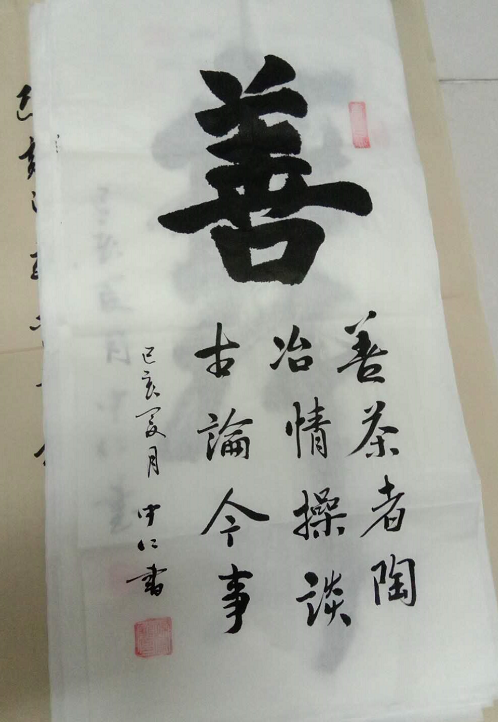 善
善茶者陶
冶情操談
古論今事
己亥夏月 中仁書